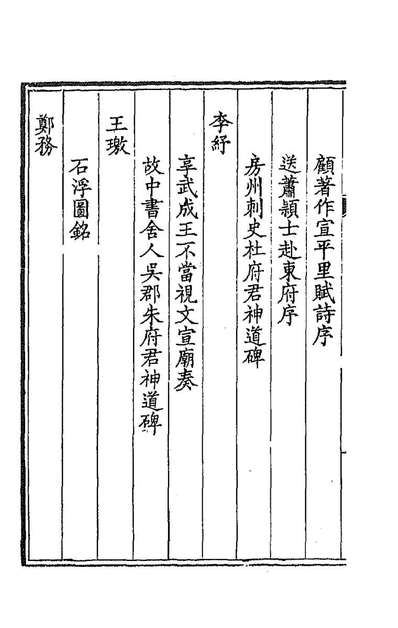 顧著作宣平里賦詩序
送蕭穎士赴東府序
房州刺史杜府君神道碑
李紓
享武成王不當視文宣廟奏
故中書舍人吳郡朱府君神道碑
王璥
石浮圖銘
鄭務